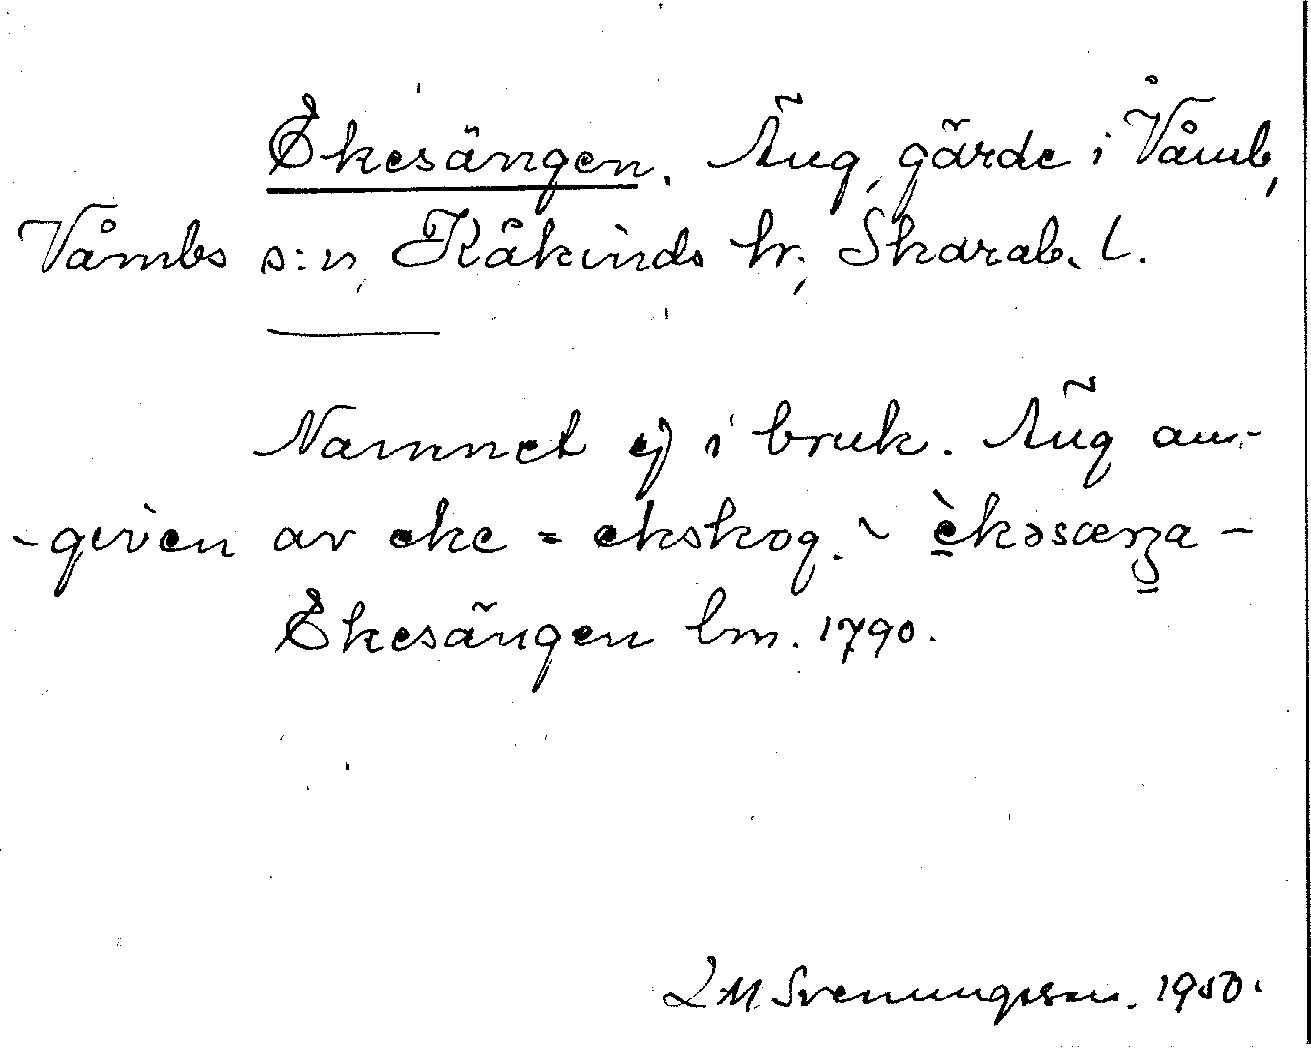 Ekesängen. Äng, gärde i Våmb,
Våmbs s:n, Kåkinds hr, Skarab. l.
Namnet ej i bruk. Äng om-
-given av eke = ekskog. - èkəsæŋa -
Ekesängen lm. 1790.
L M Svenungsson. 1950.